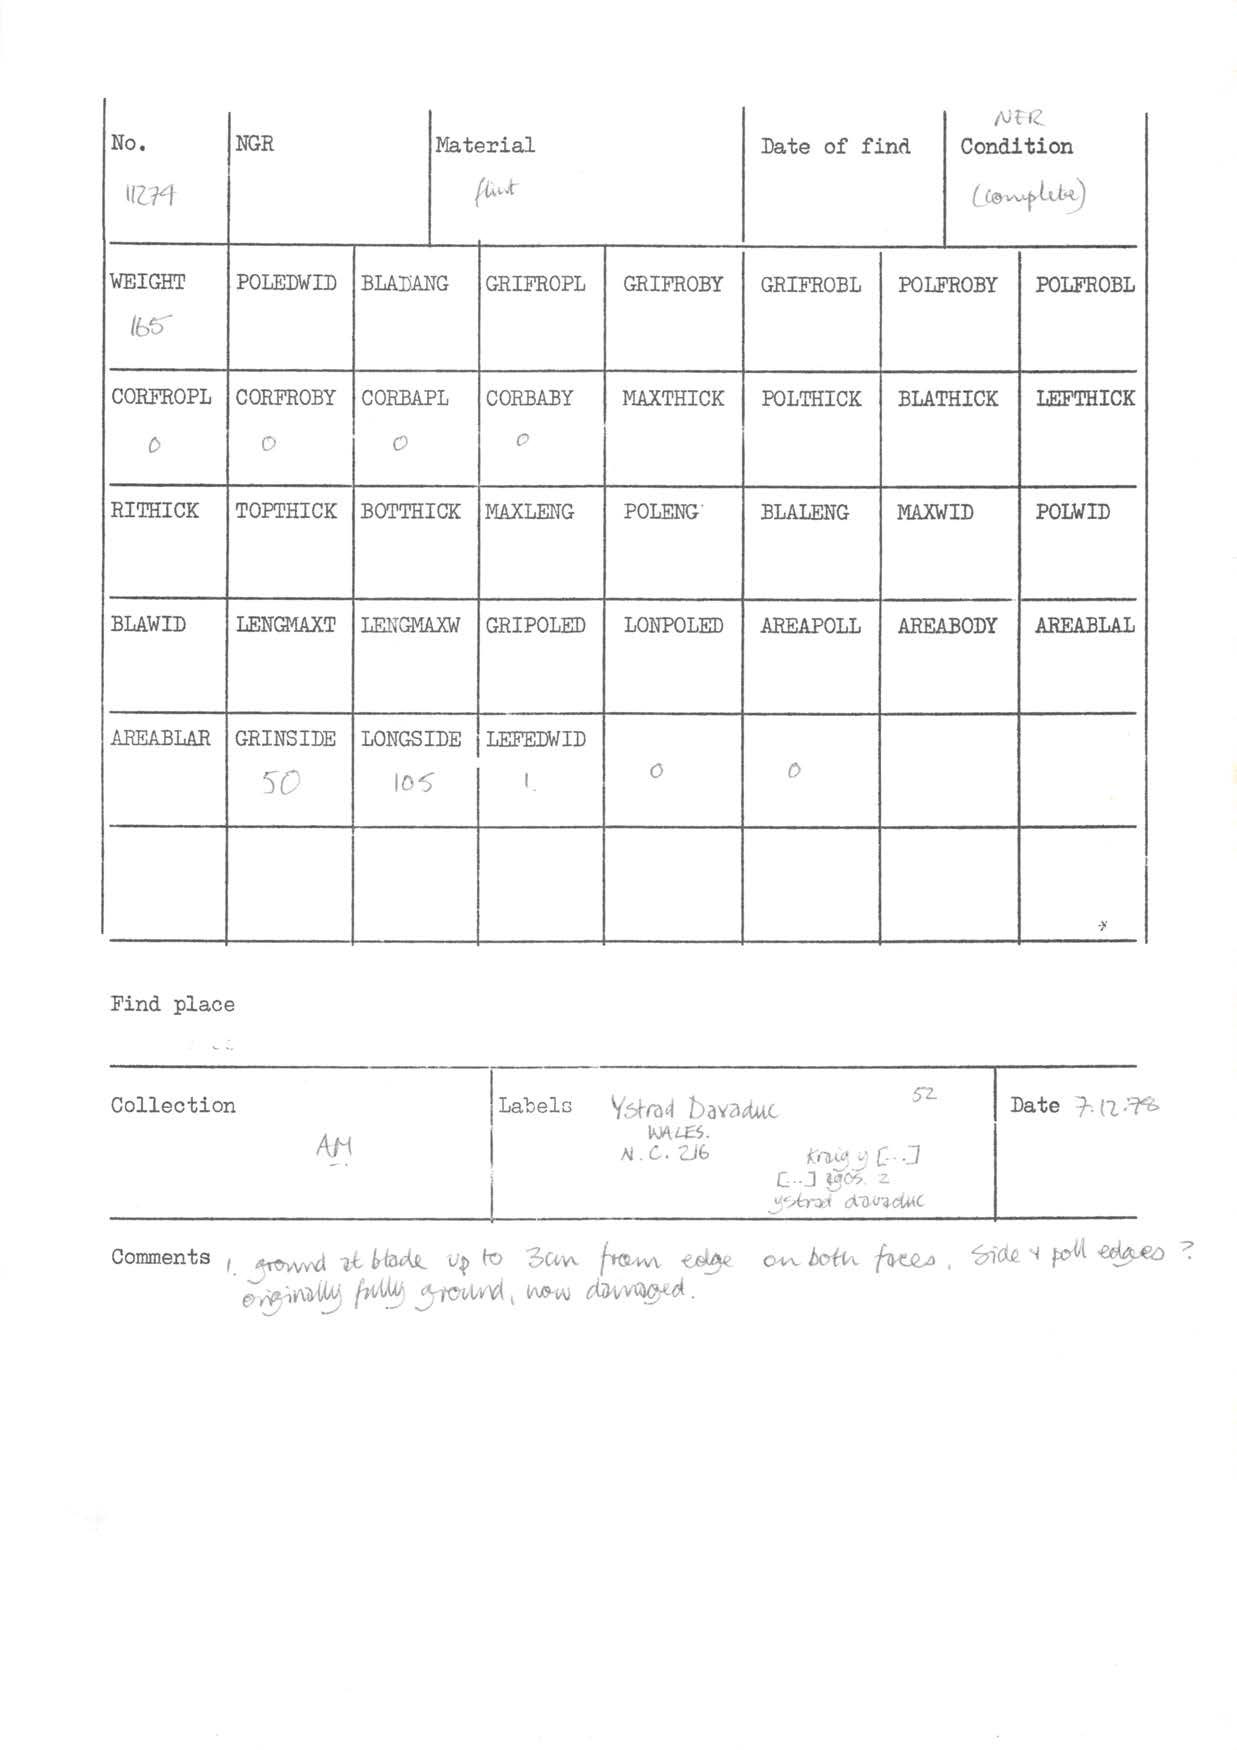 NFR
No. NGR Material Date of find Condition
11274 flint (complete)
WEIGHT POLEDWID BLADANG GRIFROPL GRIFROBY GRIFROBL POLFROBY POLFROBL
165
CORFROPL CORFROBY CORBAPL CORBABY MAXTHICK POLTHICK BLATHICK LEFTHICK
0 0 0 0
RITHICK TOPTHICK BOTTHICK MAXLENG POLENG BLALENG MAXWID POLWID
BLAWID LENGMAXT LENGMAXW GRIPOLED LONPOLED AREAPOLL AREABODY AREABLAL
AREABLAR GRINSIDE LONGSIDE LEFEDWID
50 105 1. 0 0
Find place
Collection Labels Ystrad Davaduc 52 Date 7.12.78
WALES.
AM N.C. 216 Kraig y [...]
[...] 2
ystrad davaduc
Comments 1. ground at blade up to 3cm from edge on both faces. Side & poll edges ?
originally fully ground, now damaged.